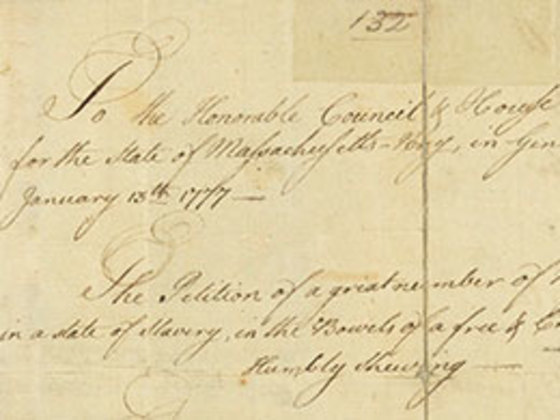 132
To the Honorable Council & House
for the State of Massachusetts-Bay, in Gen
January 13th 1777—
The Petition of a great number of
in a state of Slavery, in the Bowels of a free &
Humbly Shewing —